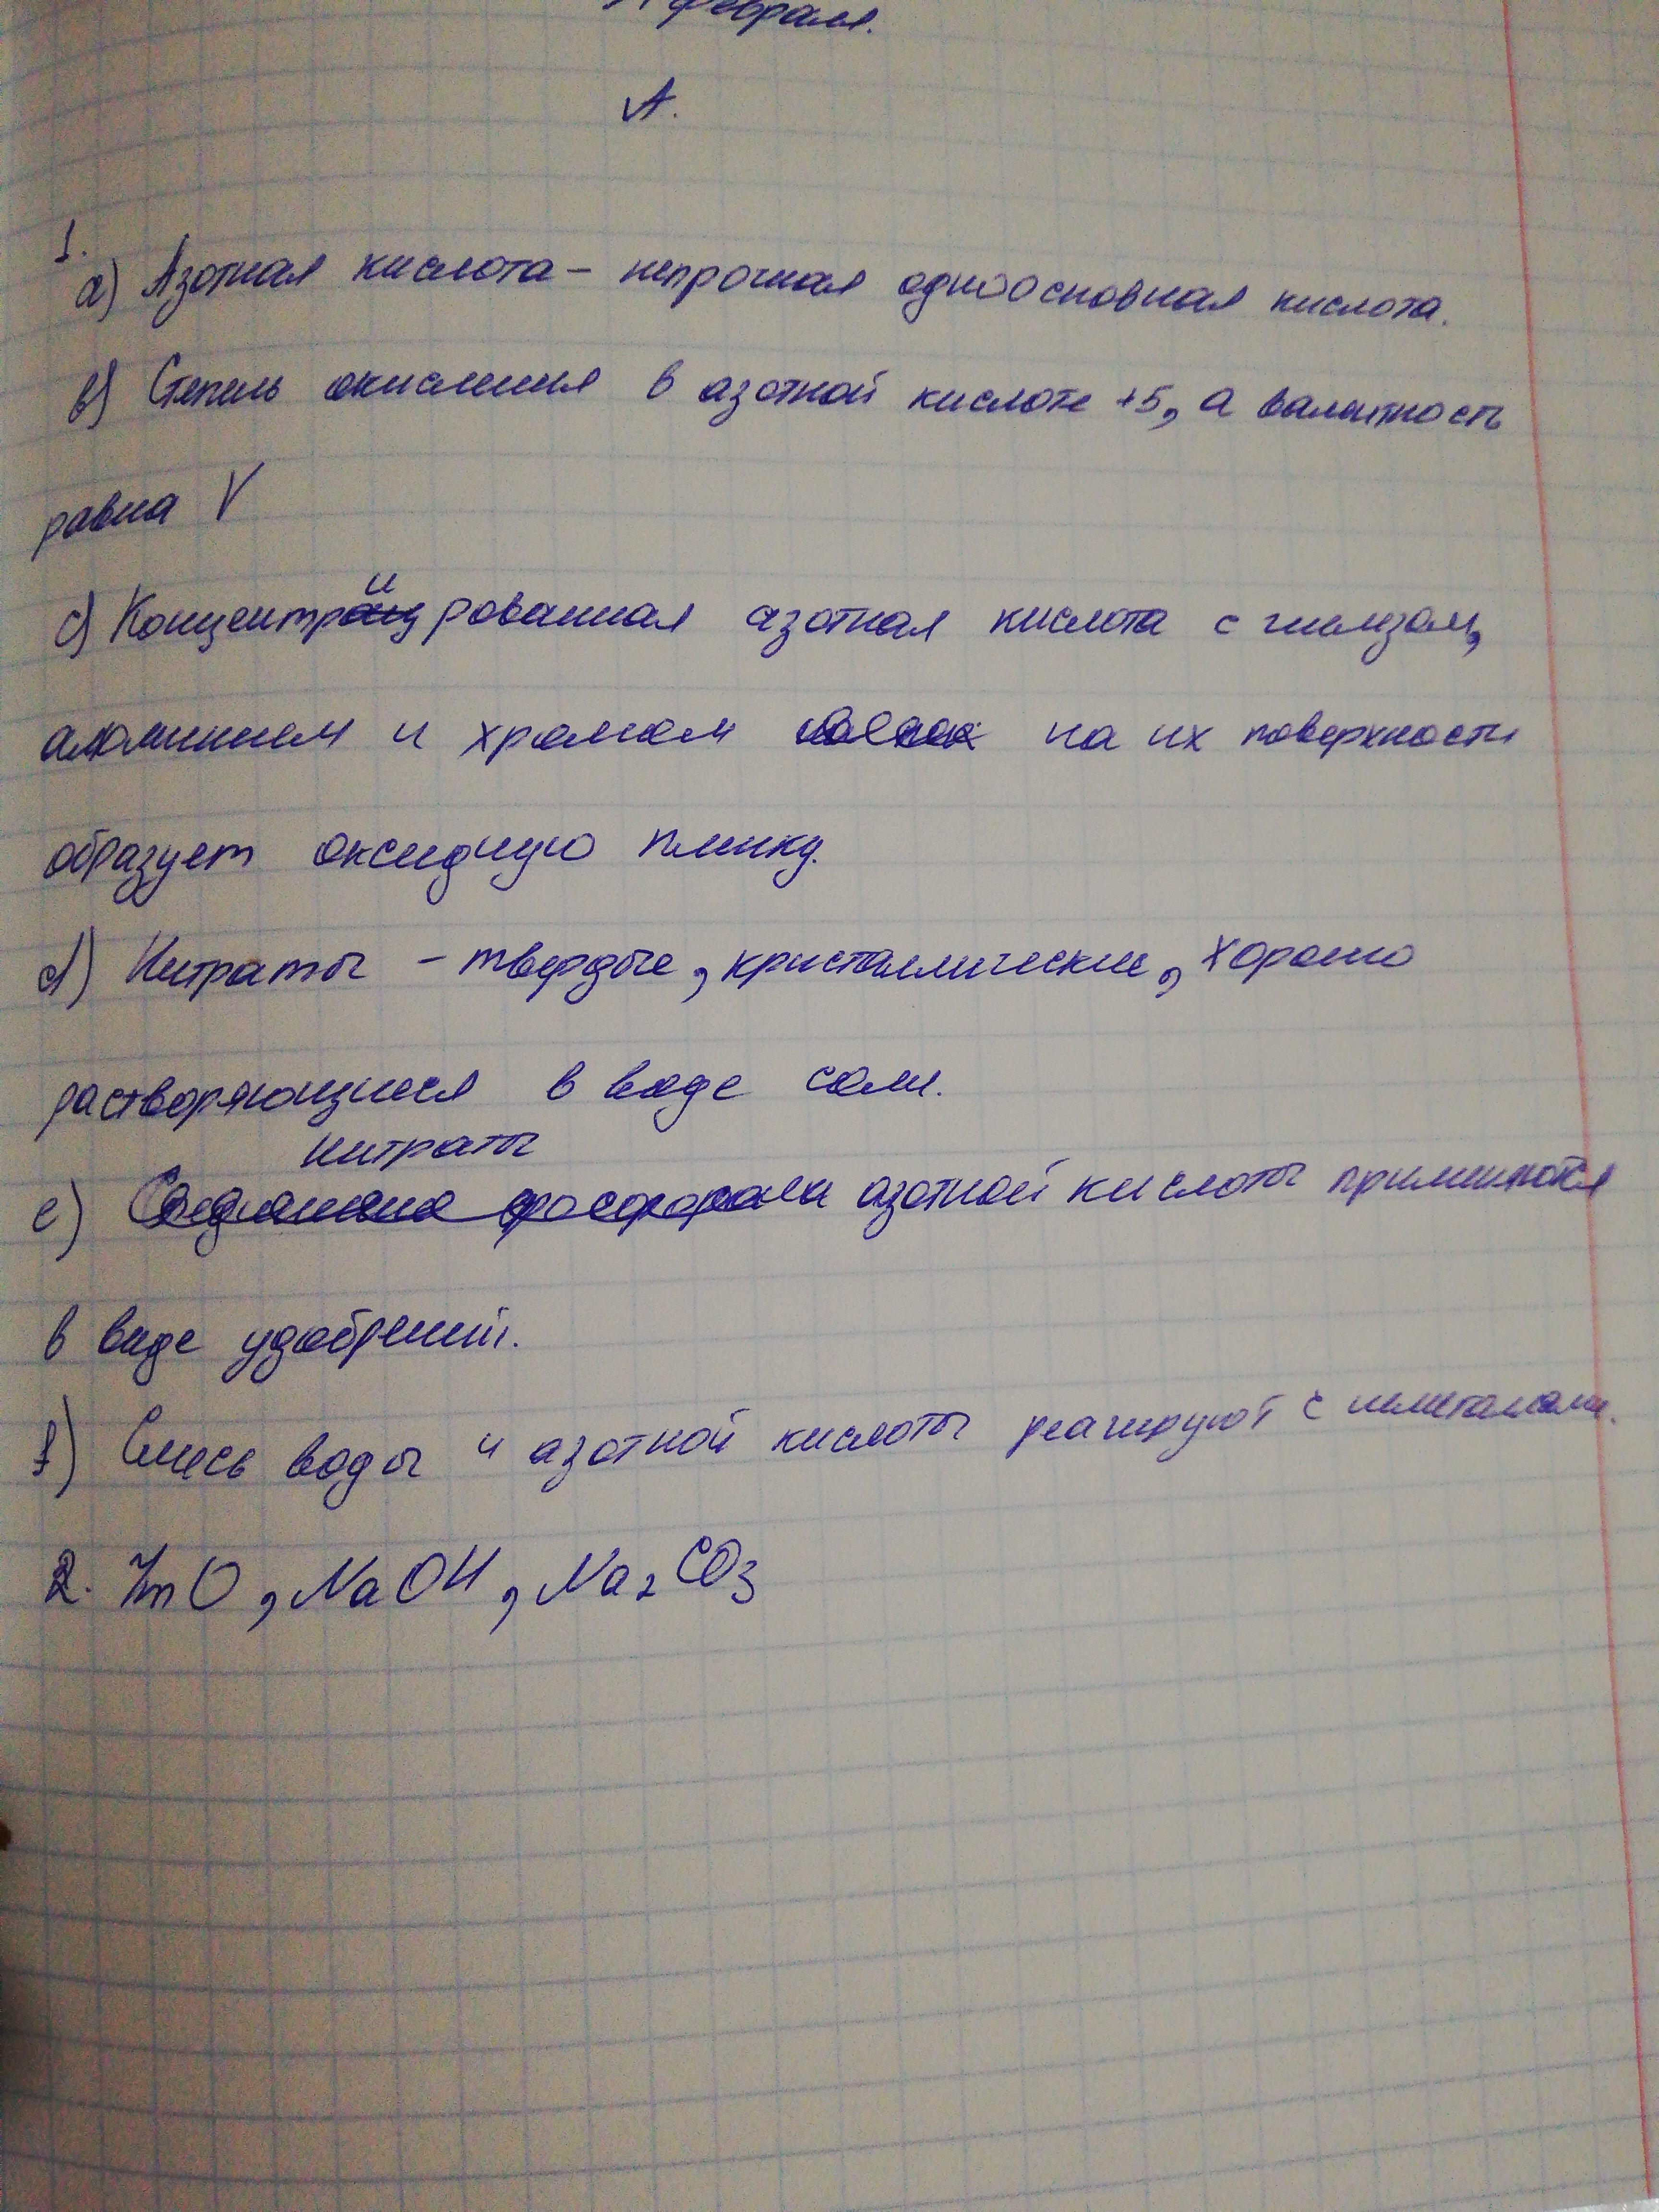 февраля.
А.
1.
а) Азотная кислота – непрочная одноосновная кислота.
в) Степень окисления в азотной кислоте +5, а валентность
равна V
с) Концентрированная азотная кислота с железом,
алюминием и хромом на их поверхности
образует оксидную пленку.
d) Нитраты – твердые, кристаллические, хорошо
растворяющиеся в воде соли.
нитраты
е) азотной кислоты применяются
в виде удобрений.
f) Смесь воды и азотной кислоты реагируют с неметаллами.
2. ZnO, NaOH, Na₂CO₃